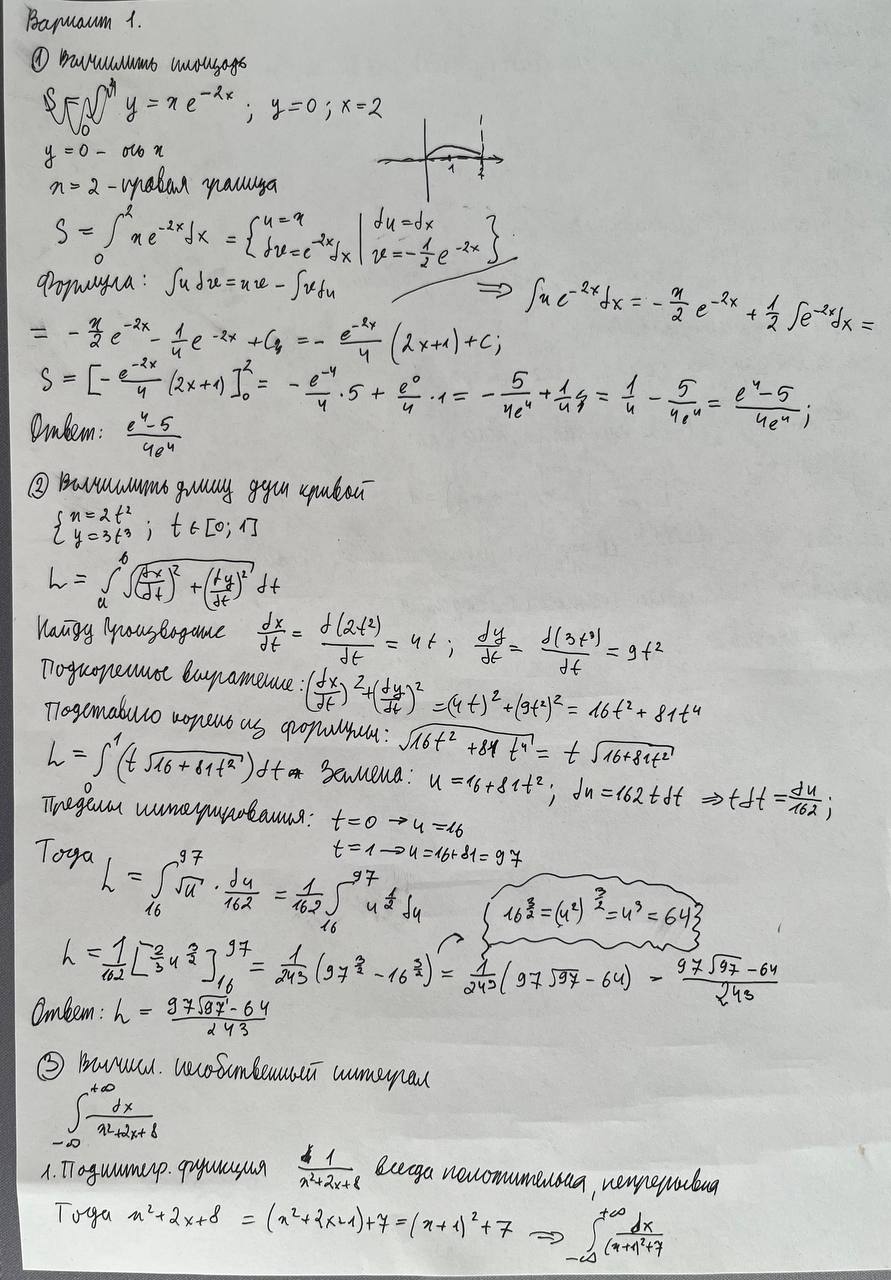 Вариант 1.
① Вычислить площадь
y = x e^{-2x}; y=0; x=2
y=0 - ось x
x=2 - правая граница
1 2
S = ∫_0^2 x e^{-2x} dx = {u=x | du=dx
dv=e^{-2x}dx | v=-\frac{1}{2}e^{-2x}}
Формула: ∫u dv = uv - ∫v du ⇒ ∫x e^{-2x}dx = -\frac{x}{2} e^{-2x} + \frac{1}{2} ∫e^{-2x}dx =
= -\frac{x}{2} e^{-2x} - \frac{1}{4} e^{-2x} + C = -\frac{e^{-2x}}{4} (2x+1) + C;
S = [-\frac{e^{-2x}}{4} (2x+1)]_0^2 = -\frac{e^{-4}}{4}·5 + \frac{e^0}{4}·1 = -\frac{5}{4e^4} + \frac{1}{4} = \frac{1}{4} - \frac{5}{4e^4} = \frac{e^4-5}{4e^4};
Ответ: \frac{e^4-5}{4e^4}
② Вычислить длину дуги кривой
{x=2t^2
y=3t^3 ; t ∈ [0; 1]
L = ∫_a^b √((\frac{dx}{dt})^2 + (\frac{dy}{dt})^2) dt
Найду производные \frac{dx}{dt} = \frac{d(2t^2)}{dt} = 4t; \frac{dy}{dt} = \frac{d(3t^3)}{dt} = 9t^2
Подкоренное выражение: (\frac{dx}{dt})^2 + (\frac{dy}{dt})^2 = (4t)^2 + (9t^2)^2 = 16t^2 + 81t^4
Подставлю корень из формулы: √(16t^2 + 81t^4) = t √(16+81t^2)
L = ∫_0^1 (t √(16+81t^2)) dt Замена: u = 16+81t^2; du = 162t dt ⇒ t dt = \frac{du}{162};
Пределы интегрирования: t=0 → u=16
t=1 → u=16+81=97
Тогда
L = ∫_{16}^{97} √u · \frac{du}{162} = \frac{1}{162} ∫_{16}^{97} u^{\frac{1}{2}} du
16^{\frac{3}{2}} = (4^2)^{\frac{3}{2}} = 4^3 = 64
L = \frac{1}{162} [\frac{2}{3} u^{\frac{3}{2}}]_{16}^{97} = \frac{1}{243} (97^{\frac{3}{2}} - 16^{\frac{3}{2}}) = \frac{1}{243} (97√97 - 64) = \frac{97√97 - 64}{243}
Ответ: L = \frac{97√97 - 64}{243}
③ Вычисл. несобственный интеграл
∫_{-∞}^{+∞} \frac{dx}{x^2+2x+8}
1. Подинтегр. функция \frac{1}{x^2+2x+8} всегда положительна, непрерывна
Тогда x^2+2x+8 = (x^2+2x+1)+7 = (x+1)^2+7 ⇒ ∫_{-∞}^{+∞} \frac{dx}{(x+1)^2+7}